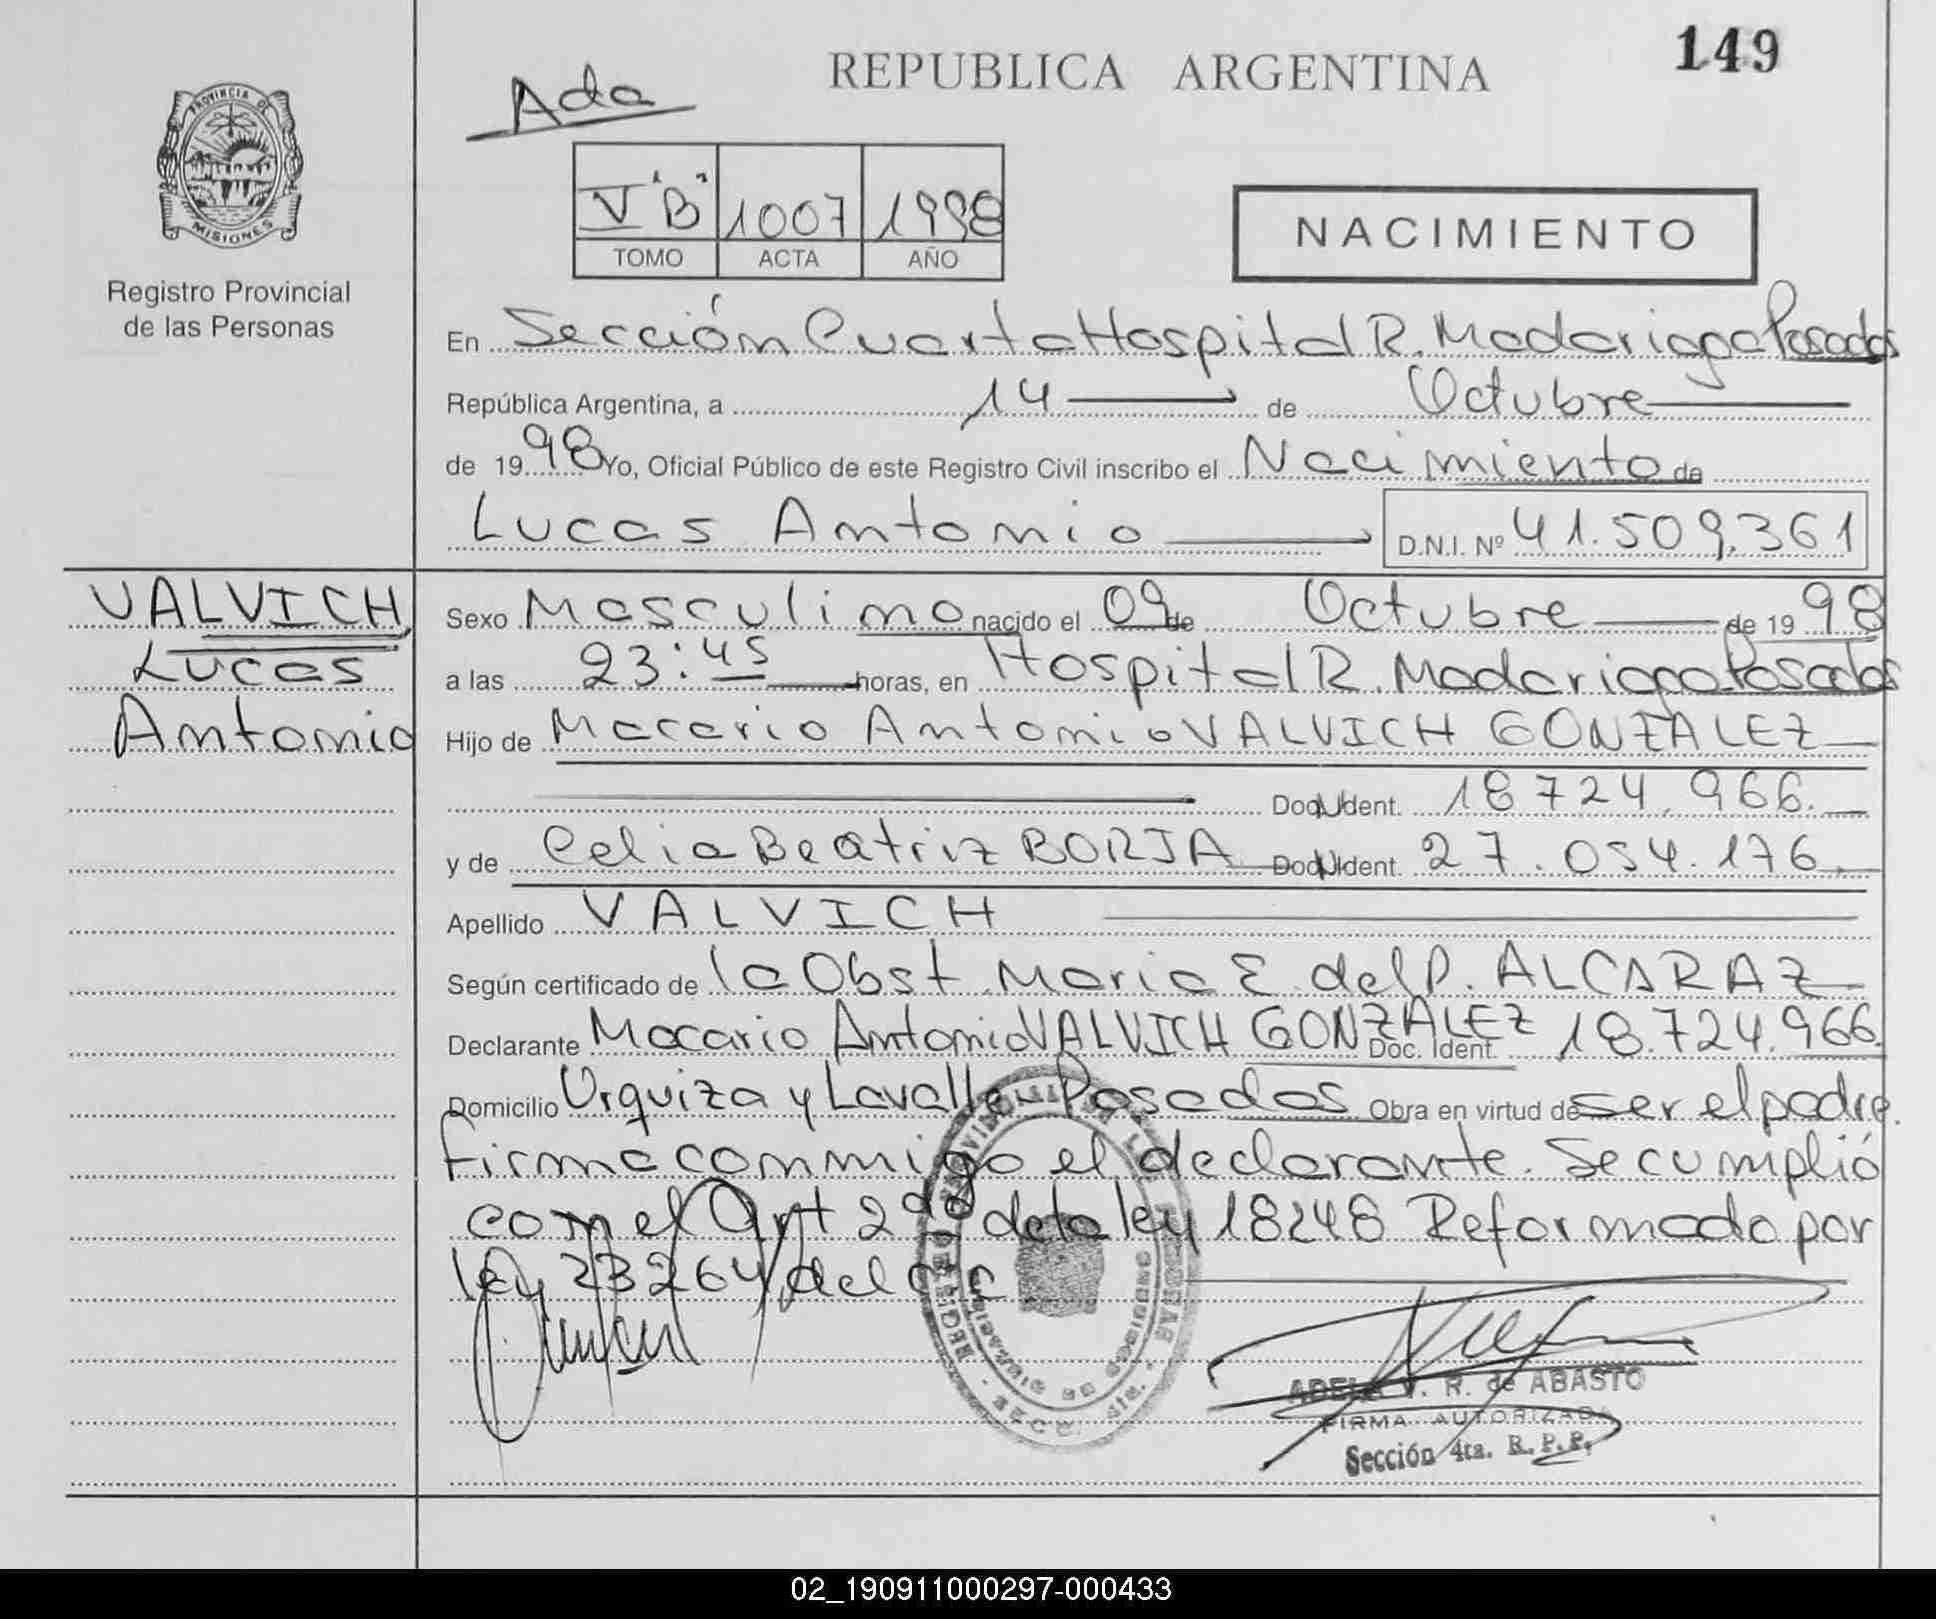 149
REPUBLICA ARGENTINA
Ada
PROVINCIA DE
MISIONES
Registro Provincial
de las Personas
V "B" 1007 1998
TOMO ACTA AÑO
NACIMIENTO
En Sección Cuarta Hospital R. Madariaga Posadas
República Argentina, a 14 de Octubre
de 1998 Yo, Oficial Público de este Registro Civil inscribo el Nacimiento de
Lucas Antonio D.N.I. Nº 41.509.361
VALVICH
Lucas
Antonio
Sexo Masculino nacido el 09 de Octubre de 1998
a las 23:45 horas, en Hospital R. Madariaga Posadas
Hijo de Macario Antonio VALVICH GONZALEZ
Doc. Ident. 18724.966.
y de Celia Beatriz BORJA Doc. Ident. 27.054.176
Apellido VALVICH
Según certificado de la Obst. Maria E. del P. ALCARAZ
Declarante Macario Antonio VALVICH GONZALEZ Doc. Ident. 18.724.966
Domicilio Urquiza y Lavalle Posadas Obra en virtud de ser el padre.
firma conmigo el declarante. Se cumplió
con el Art 2do de la ley 18248 Reformado por
ley 23264 del
ADELA V. R. de ABASTO
FIRMA AUTORIZADA
Sección 4ta. R.P.P.
02_190911000297-000433